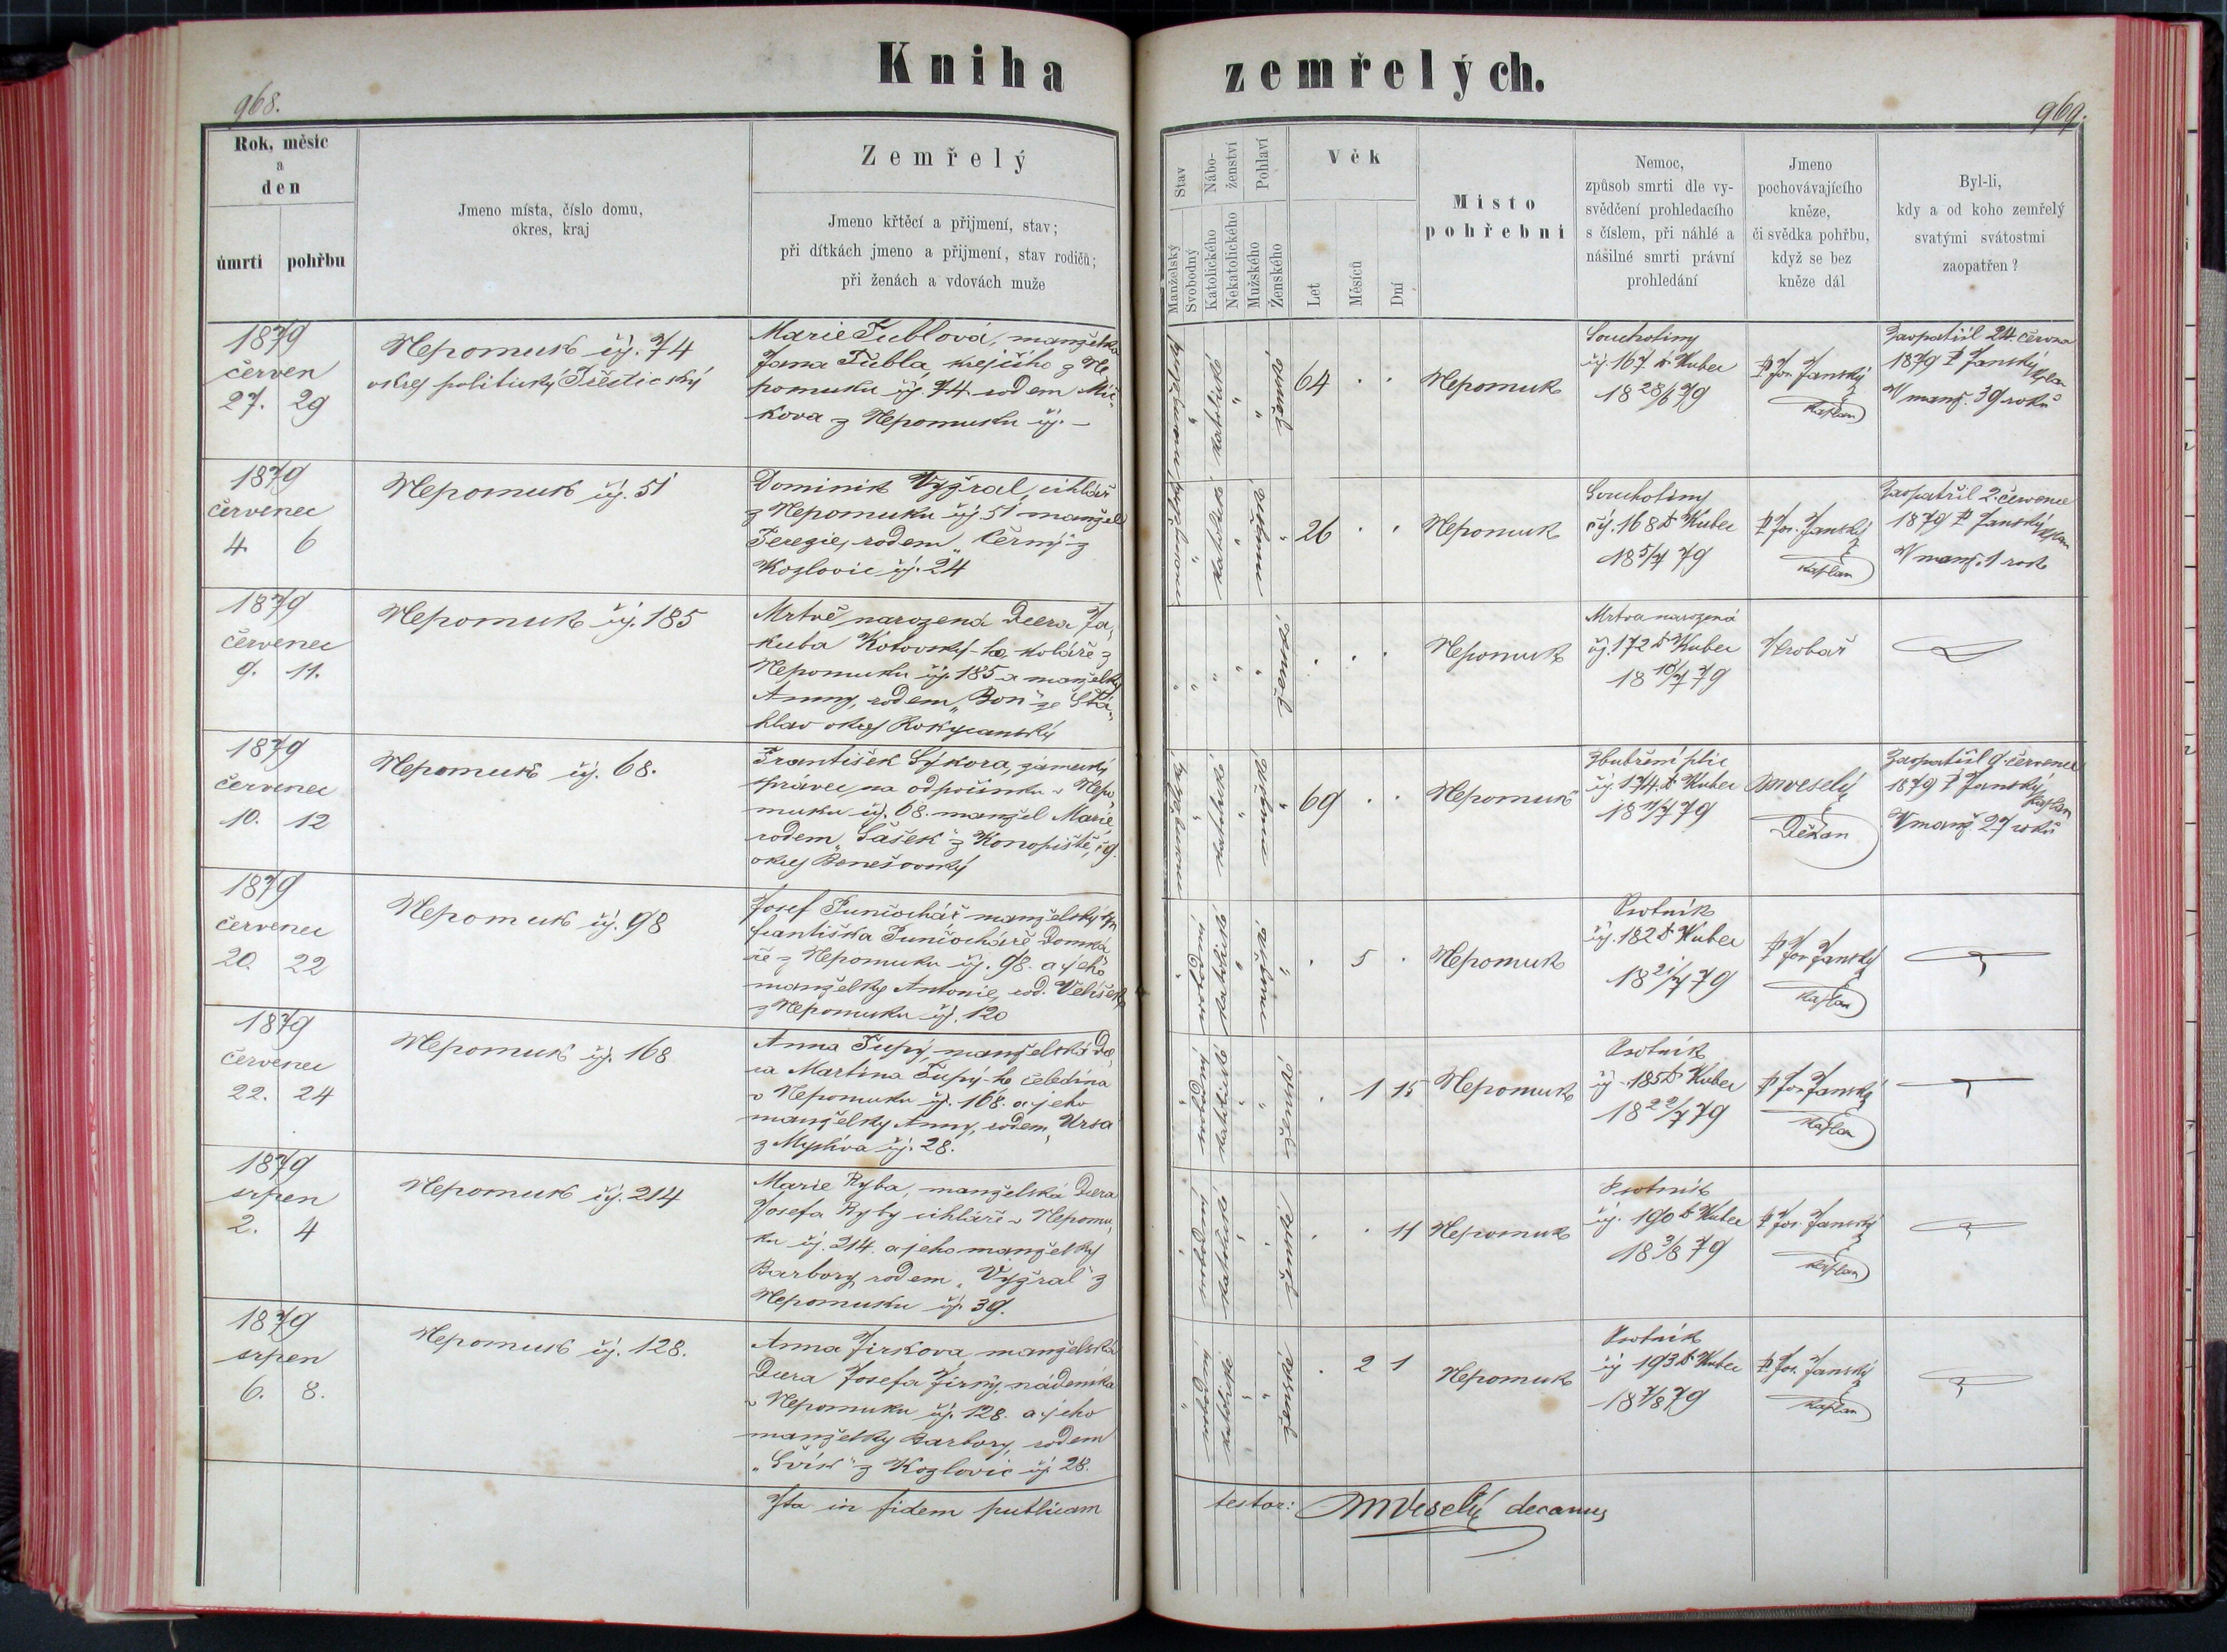 Kniha zemřelých.
968.
969.
Rok, měsíc
a
den
úmrtí
pohřbu
Jmeno místa, číslo domu,
okres, kraj
Zemřelý
Jmeno křtěcí a přijmení, stav;
při dítkách jmeno a přijmení, stav rodičů;
při ženách a vdovách muže
Stav
Manželský
Svobodný
Nábo-
ženství
Katolického
Nekatolického
Pohlaví
Mužského
Ženského
Věk
Let
Měsíců
Dní
Místo
pohřební
Nemoc,
způsob smrti dle vy-
svědčení prohledacího
s číslem, při náhlé a
násilné smrti právní
prohledání
Jmeno
pochovávajícího
kněze,
či svědka pohřbu,
když se bez
kněze dál
Byl-li,
kdy a od koho zemřelý
svatými svátostmi
zaopatřen?
1879
červen
27. 29
Nepomuk čj. 74
okres politický
Marie Tublová, manželka
Jana Tubla, krejčího z Ne-
pomuku čj. 74. rodem
z Nepomuku čj. –
katolické
ženské
64 . .
Nepomuk
Souchotiny
čj. 167 Dr Kuber
18 28/6 79
P Jos. Janský
kaplan
Zaopatřil 24. června
1879 P Janský kaplan
V manž. 39 roků
1879
červenec
4. 6
Nepomuk čj. 51
Dominik Vyžral, cihlář
z Nepomuku čj. 51 manžel
Terezie, rodem „Černý" z
Kozlovic čj. 24
katolické
mužské
26 . .
Nepomuk
Souchotiny
čj. 168 Dr Kuber
18 5/7 79
P Jos. Janský
kaplan
Zaopatřil 2. července
1879 P Janský kaplan
V manž. 1 rok
1879
červenec
9. 11.
Nepomuk čj. 185
Mrtvě narozená Dcera Ja-
kuba Kotovský-ho koláře z
Nepomuku čj. 185 a manželky
Anny, rodem „Bon" ze Šťá-
hlav okres Rokycanský
ženské
. . .
Nepomuk
Mrtva narozená
čj. 172 Dr Kuber
18 10/7 79
Hrobař
1879
červenec
10. 12
Nepomuk čj. 68.
František Sýkora, zámecký
správce na odpočinku v Nepo-
muku čj. 68. manžel Marie
rodem „Sašek" z Konopiště, čj.
okres Benešovský
katolické
mužské
69 . .
Nepomuk
Zbubření plic
čj. 174. Dr Kuber
18 11/7 79
MVeselý
Děkan
Zaopatřil 9. července
1879 P Janský kaplan
V manž. 27 roků
1879
červenec
20. 22
Nepomuk čj. 98
Josef Punčochář manželský syn
Františka Punčocháře Domká-
ře z Nepomuku čj. 98. a jeho
manželky Antonie, rod.
z Nepomuku čj. 120
svobodný
katolické
mužské
. 5 .
Nepomuk
Psotník
čj. 182 Dr Kuber
18 21/7 79
P Jos Janský
kaplan
1879
červenec
22. 24
Nepomuk čj. 168
Anna Tupý, manželská Dce-
ra Martina Tupý-ho čeledína
v Nepomuku čj. 168. a jeho
manželky Anny, rodem „Ursa"
z Myslíva čj. 28.
svobodný
katolické
ženské
. 1 15
Nepomuk
Psotník
čj. 185 Dr Kuber
18 22/7 79
P Jos Janský
kaplan
1879
srpen
2. 4
Nepomuk čj. 214
Marie Ryba, manželská Dcera
Josefa Ryby cihláře v Nepomu-
ku čj. 214. a jeho manželky
Barbory, rodem „Vyžral" z
Nepomuku čj. 39.
svobodný
katolické
ženské
. . 11
Nepomuk
Psotník
čj. 190 Dr Kuber
18 3/8 79
P Jos. Janský
kaplan
1879
srpen
6. 8.
Nepomuk čj. 128.
Anna Jirkova manželská
Dcera Josefa nádeníka
v Nepomuku čj. 128. a jeho
manželky Barbory, rodem
„Švík" z Kozlovic čj. 28.
svobodný
katolické
ženské
. 2 1
Nepomuk
Psotník
čj 193 Dr Kuber
18 7/8 79
P Jos. Janský
kaplan
Ita in fidem publicam testor: MVeselý decanus